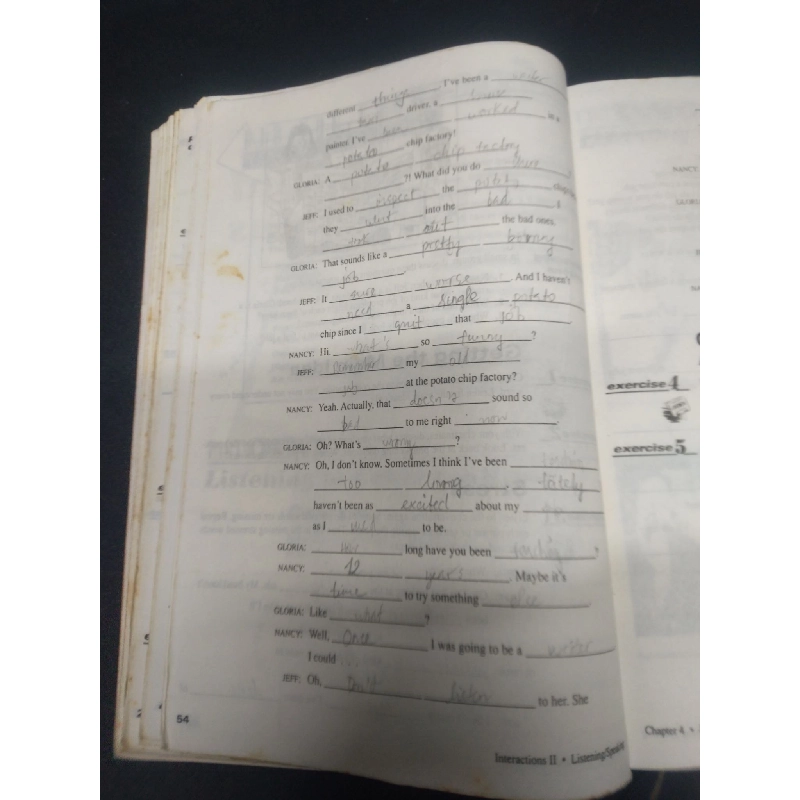 different things. I've been a waiter
driver, a
painter. I've worked in a
potato chip factory!
GLORIA: A potato chip factory
?! What did you do there
JEFF: I used to inspect the potato
they went into the bad I
took out the bad ones.
GLORIA: That sounds like a pretty boring
job.
JEFF: It was worse. And I haven't
need a single potato
chip since I quit that job
NANCY: Hi. what's so funny?
JEFF: my old
job at the potato chip factory?
NANCY: Yeah. Actually, that doesn't sound so
bad to me right now.
GLORIA: Oh? What's wrong?
NANCY: Oh, I don't know. Sometimes I think I've been
too long. lately
haven't been as excited about my
as I used to be.
GLORIA: How long have you been teaching?
NANCY: 12 years. Maybe it's
time to try something else
GLORIA: Like what?
NANCY: Well, Once I was going to be a writer
I could
JEFF: Oh, Don't listen to her. She
54
Interactions II • Listening/Speaking
NANCY
exercise 4
exercise 5
Chapter 4 •